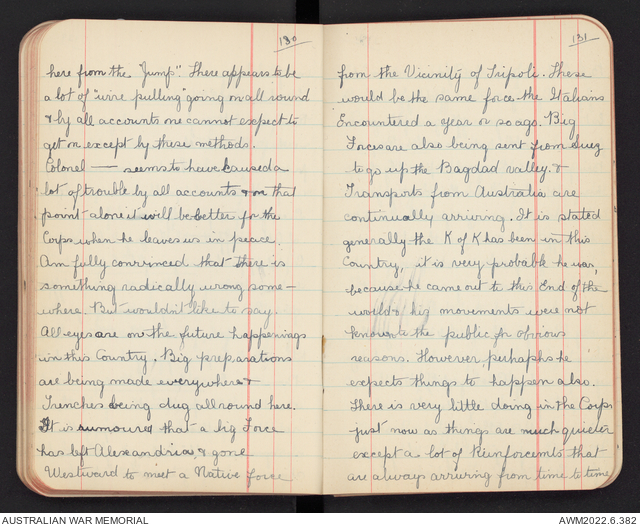 130
here from the "Jump". There appears to be
a lot of "wire pulling" going on all round
& by all accounts one cannot expect to
get on except by these methods.
Colonel — seems to have caused a
lot of trouble by all accounts & on that
point alone it will be better for the
Corps when he leaves us in peace
Am fully convinced that there is
something radically wrong some-
where. But wouldn't like to say.
All eyes are on the future happenings
in this Country. Big preparations
are being made everywhere &
Trenches being dug all round here.
It is rumoured that a big Force
has left Alexandria, & gone
Westward to meet a Native Force
131
from the Vicinity of Tripoli. These
would be the same force the Italians
Encountered a year or so ago. Big
Forces are also being sent from Suez
to go up the Bagdad valley. &
Transports from Australia are
continually arriving. It is stated
generally the K of K has been in this
Country, it is very probable he was,
because he came out to this End of the
world & his movements were not
known to the public for obvious
reasons. However perhaphs he
expects things to happen also.
There is very little doing in the Corps
just now as things are much quieter
except a lot of Reinforcents that
are always arriving from time to time
AUSTRALIAN WAR MEMORIAL
AWM2022.6.382